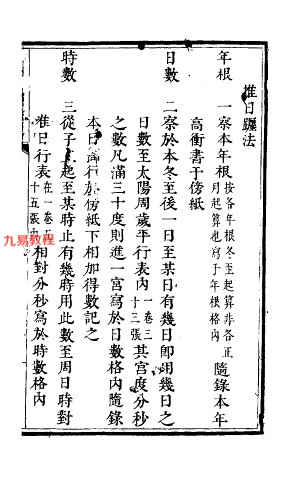 推日躔法
年根 一察本年根 按各年根冬至起算非各正
月起算也寫于年根格內 隨錄本年
高衝書于傍紙
日數 二察於本冬至後一日至某日有幾日卽用幾日之
日數至太陽周歲平行表內 一卷三
十三張 其宮度分秒
之數凡滿三十度則進一宮寫於日數格內隨錄
本日 行於傍紙下相加得數記之
時數 三從子 起至某時止有幾時用此數至周日時對
推日行表 在一卷
十五張 相對分秒寫於時數格內
九易教程